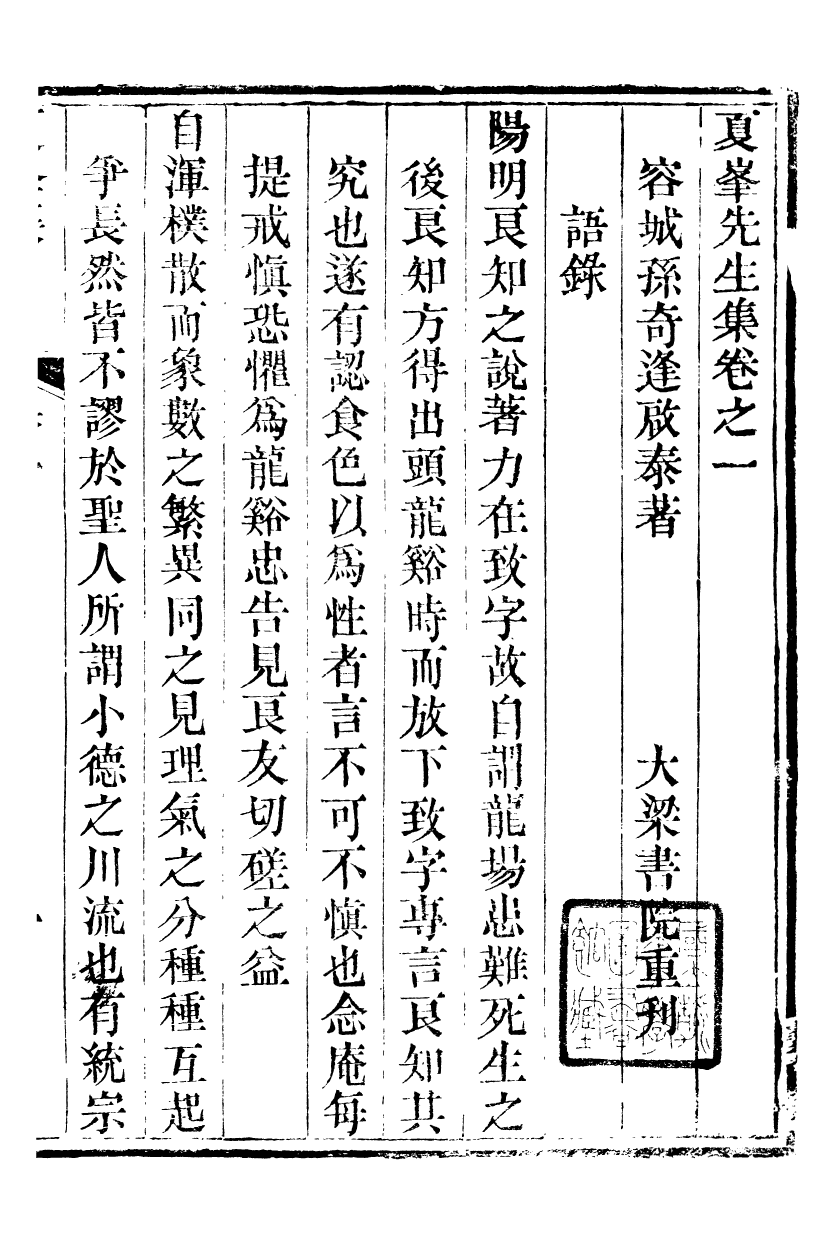 夏峯先生集卷之一
容城孫奇逢啟泰著 大梁書院重刋
語錄
陽明良知之說著力在致字故自謂龍場患難死生之
後良知方得出頭龍谿時而放下致字專言良知其
究也遂有認食色以爲性者言不可不愼也念庵每
提戒愼恐懼爲龍谿忠告見良友切磋之益
自渾樸散而象數之繁異同之見理氣之分種種互起
爭長然皆不謬於聖人所謂小德之川流也有統宗